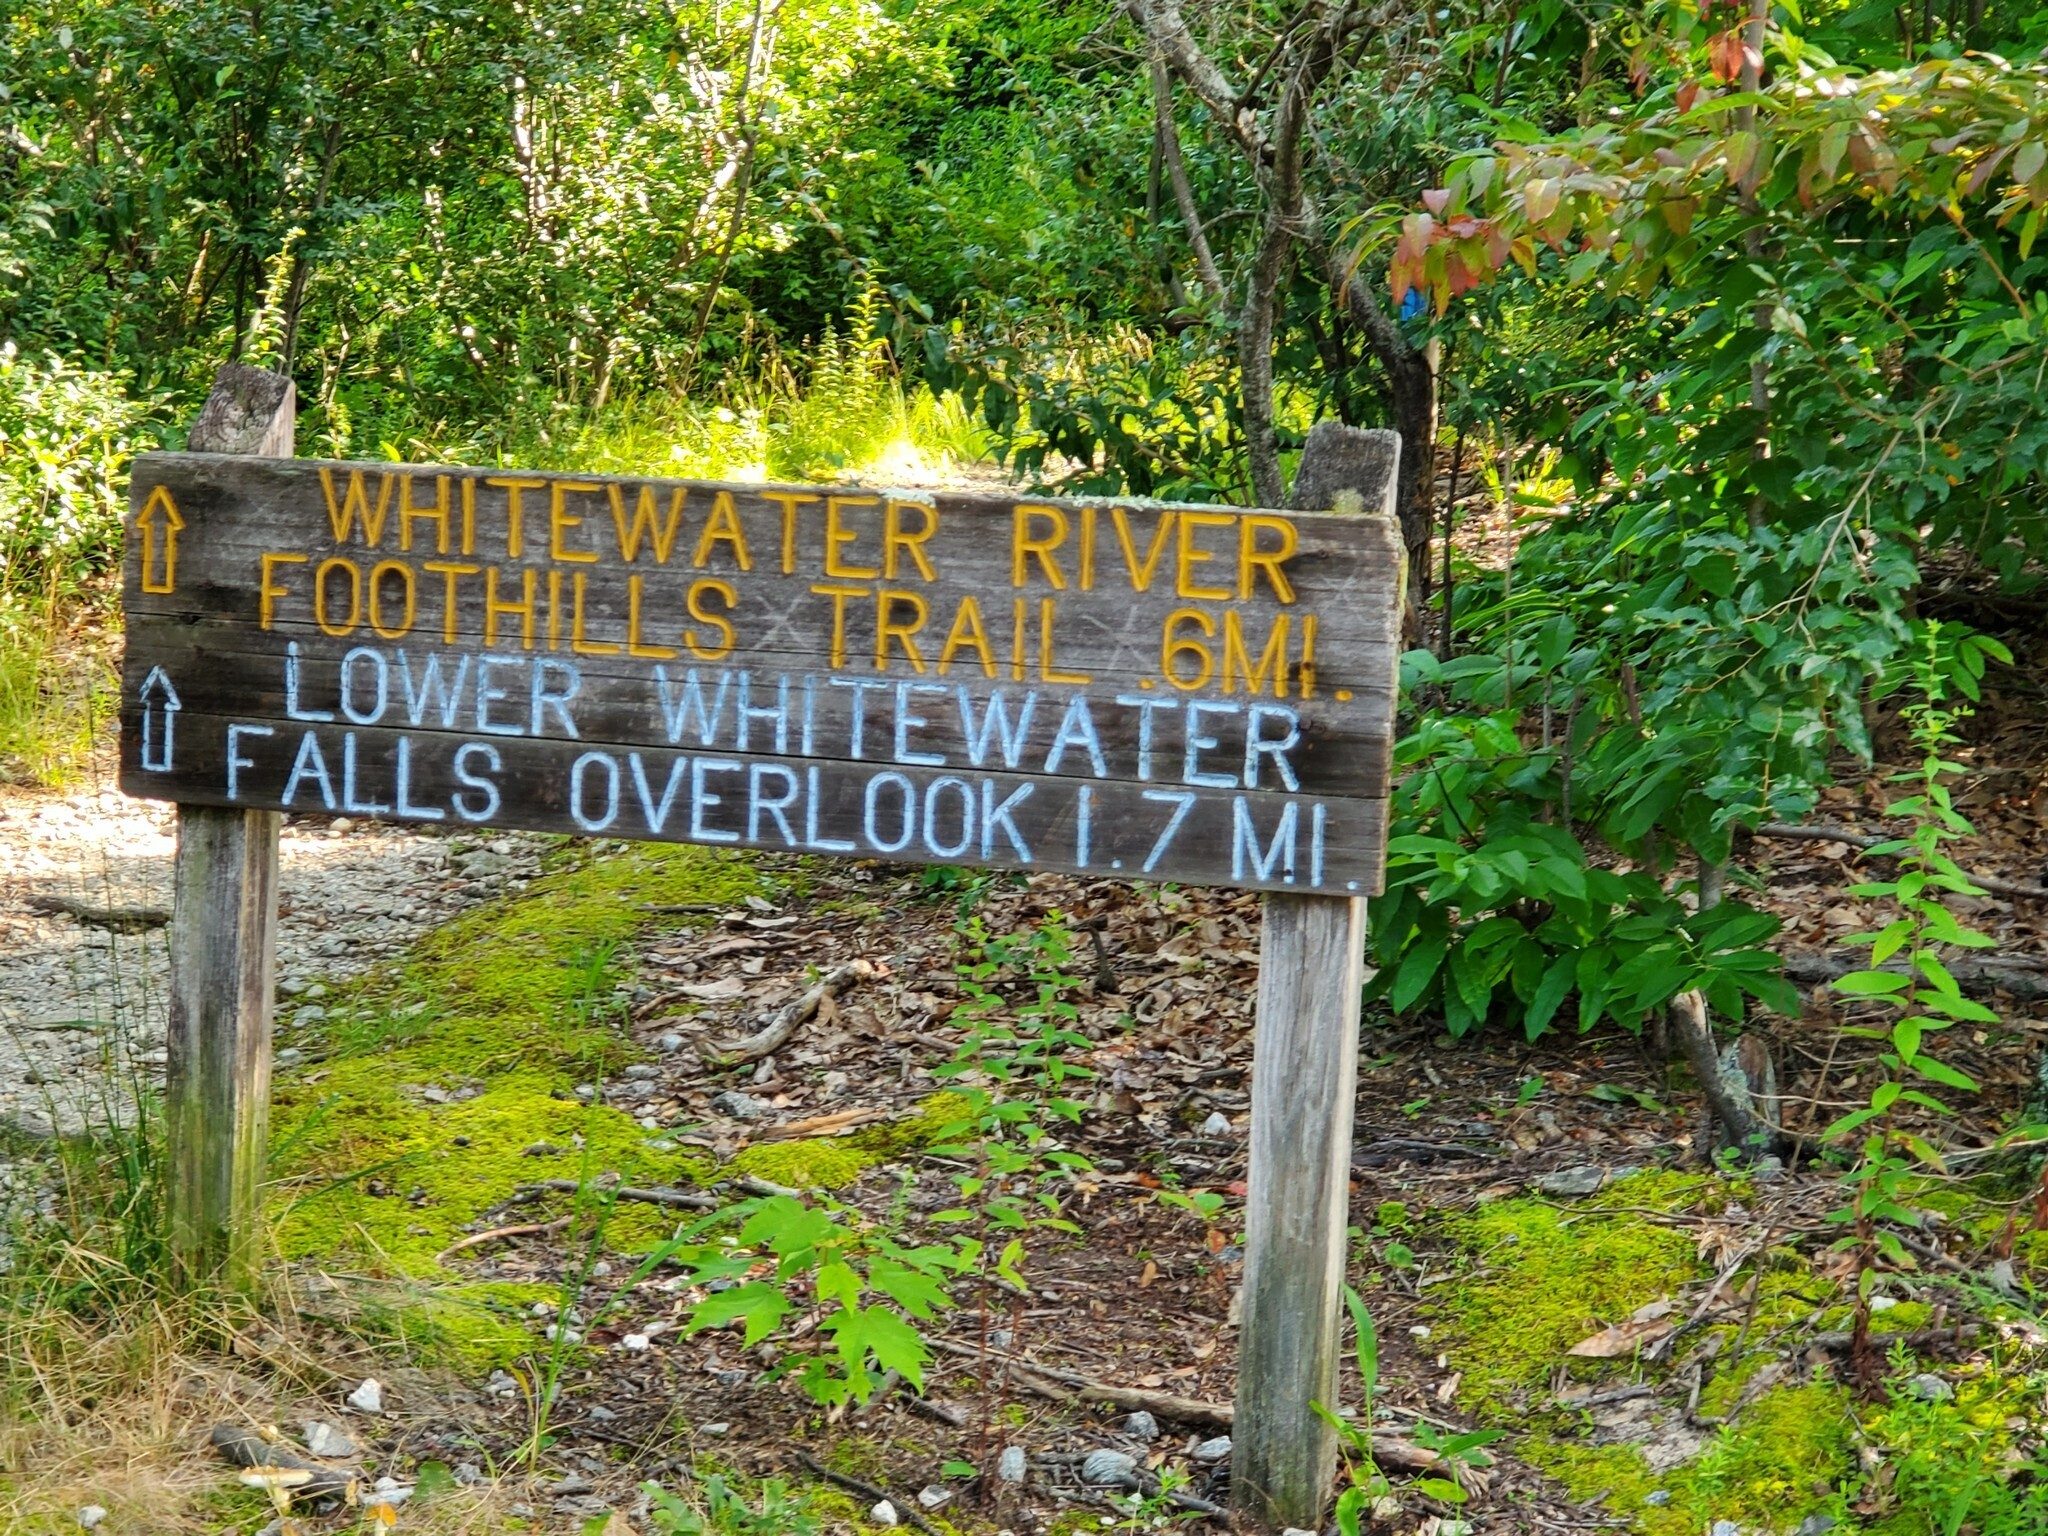 WHITEWATER RIVER
FOOTHILLS TRAIL .6MI.
LOWER WHITEWATER
FALLS OVERLOOK 1.7 MI.